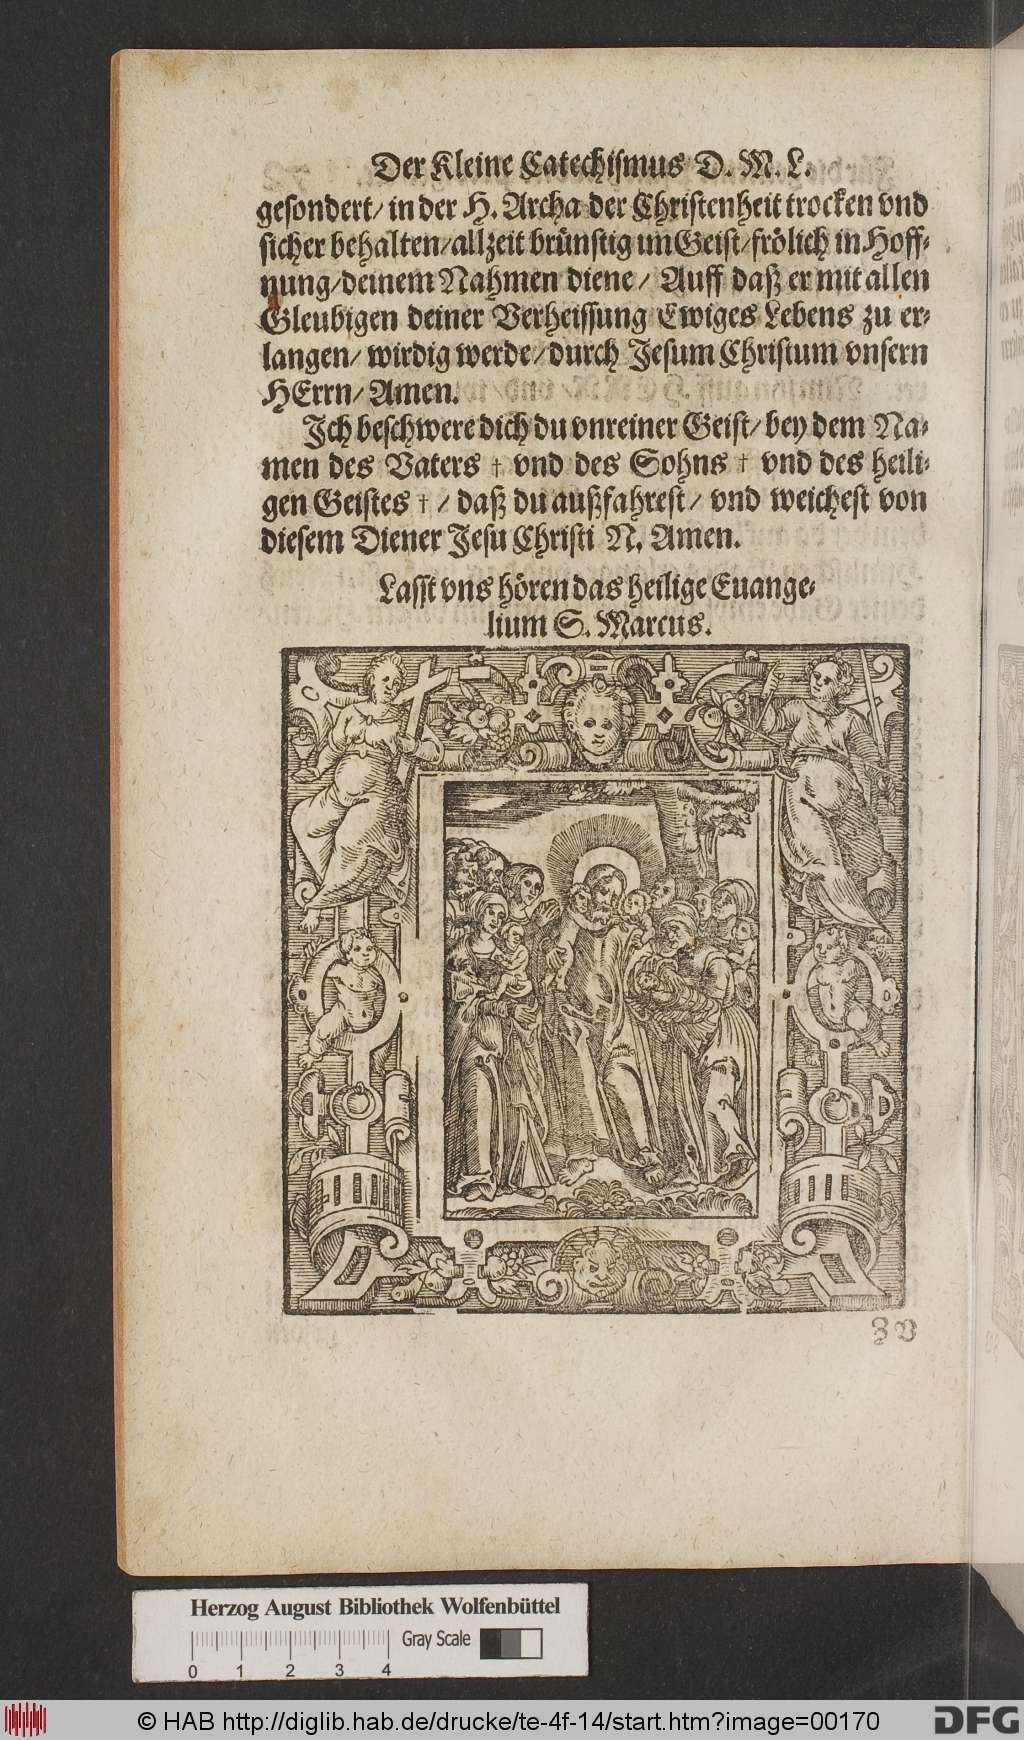 Der Kleine Catechismus D. M. L.
gesondert/ in der H. Archa der Christenheit trocken vnd
sicher behalten/ allzeit brünstig im Geist/ frölich in Hoff-
nung/ deinem Nahmen diene/ Auff daß er mit allen
Gleubigen deiner Verheissung Ewiges Lebens zu er-
langen/ wirdig werde/ durch Jesum Christum vnsern
HErrn/ Amen.
Jch beschwere dich du vnreiner Geist/ bey dem Na-
men des Vaters † vnd des Sohns † vnd des heili-
gen Geistes † / daß du außfahrest/ vnd weichest von
diesem Diener Jesu Christi N. Amen.
Lasst vns hören das heilige Euange-
lium S. Marcus.
Herzog August Bibliothek Wolfenbüttel
Gray Scale
0 1 2 3 4
© HAB http://diglib.hab.de/drucke/te-4f-14/start.htm?image=00170
DFG